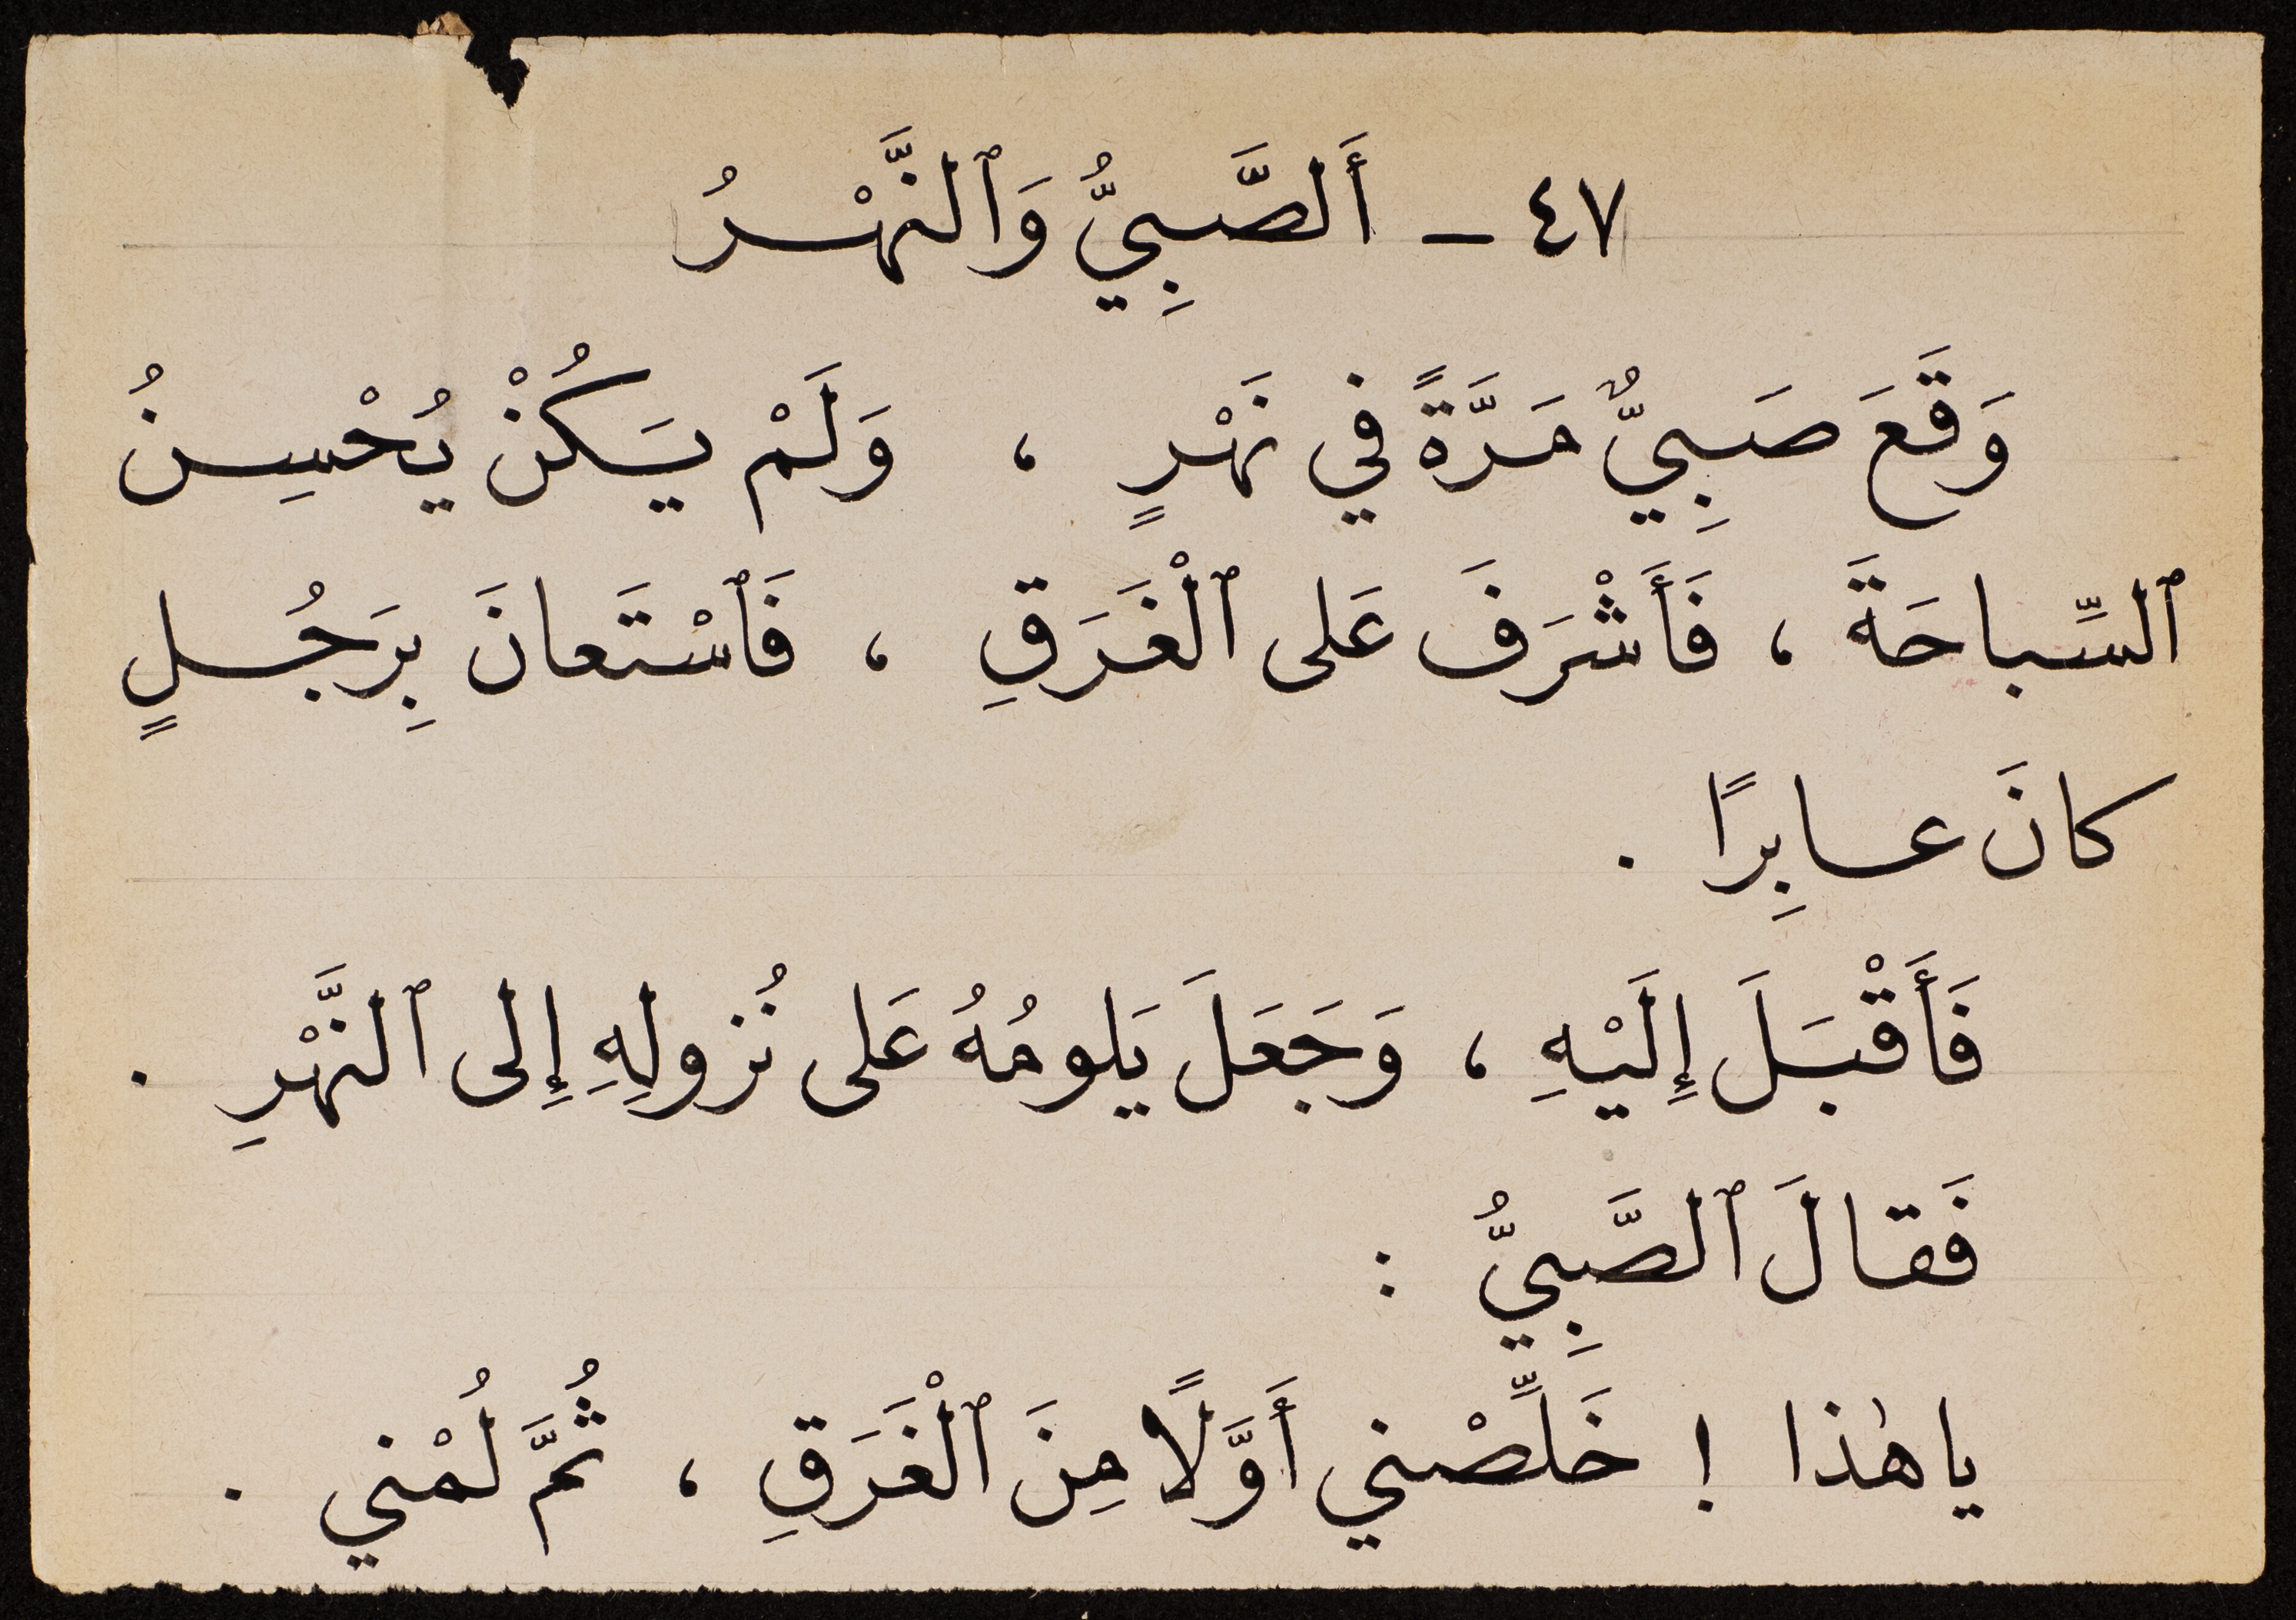 ٤٧ – أَلصَّبِيُّ وَٱلنَّهْرُ
وَقَعَ صَبِيٌّ مَرَّةً في نَهْرٍ ، وَلَمْ يَكُنْ يُحْسِنُ
ٱلسِّباحَةَ ، فَأَشْرَفَ عَلى ٱلْغَرَقِ ، فَٱسْتَعانَ بِرَجُلٍ
كانَ عابِرًا .
فَأَقْبَلَ إِلَيْهِ ، وَجَعَلَ يَلومُهُ عَلى نُزولِهِ إِلى ٱلنَّهْرِ .
فَقالَ ٱلصَّبِيُّ :
يا هٰذا ! خَلِّصْني أَوَّلًا مِنَ ٱلْغَرَقِ ، ثُمَّ لُمْني .